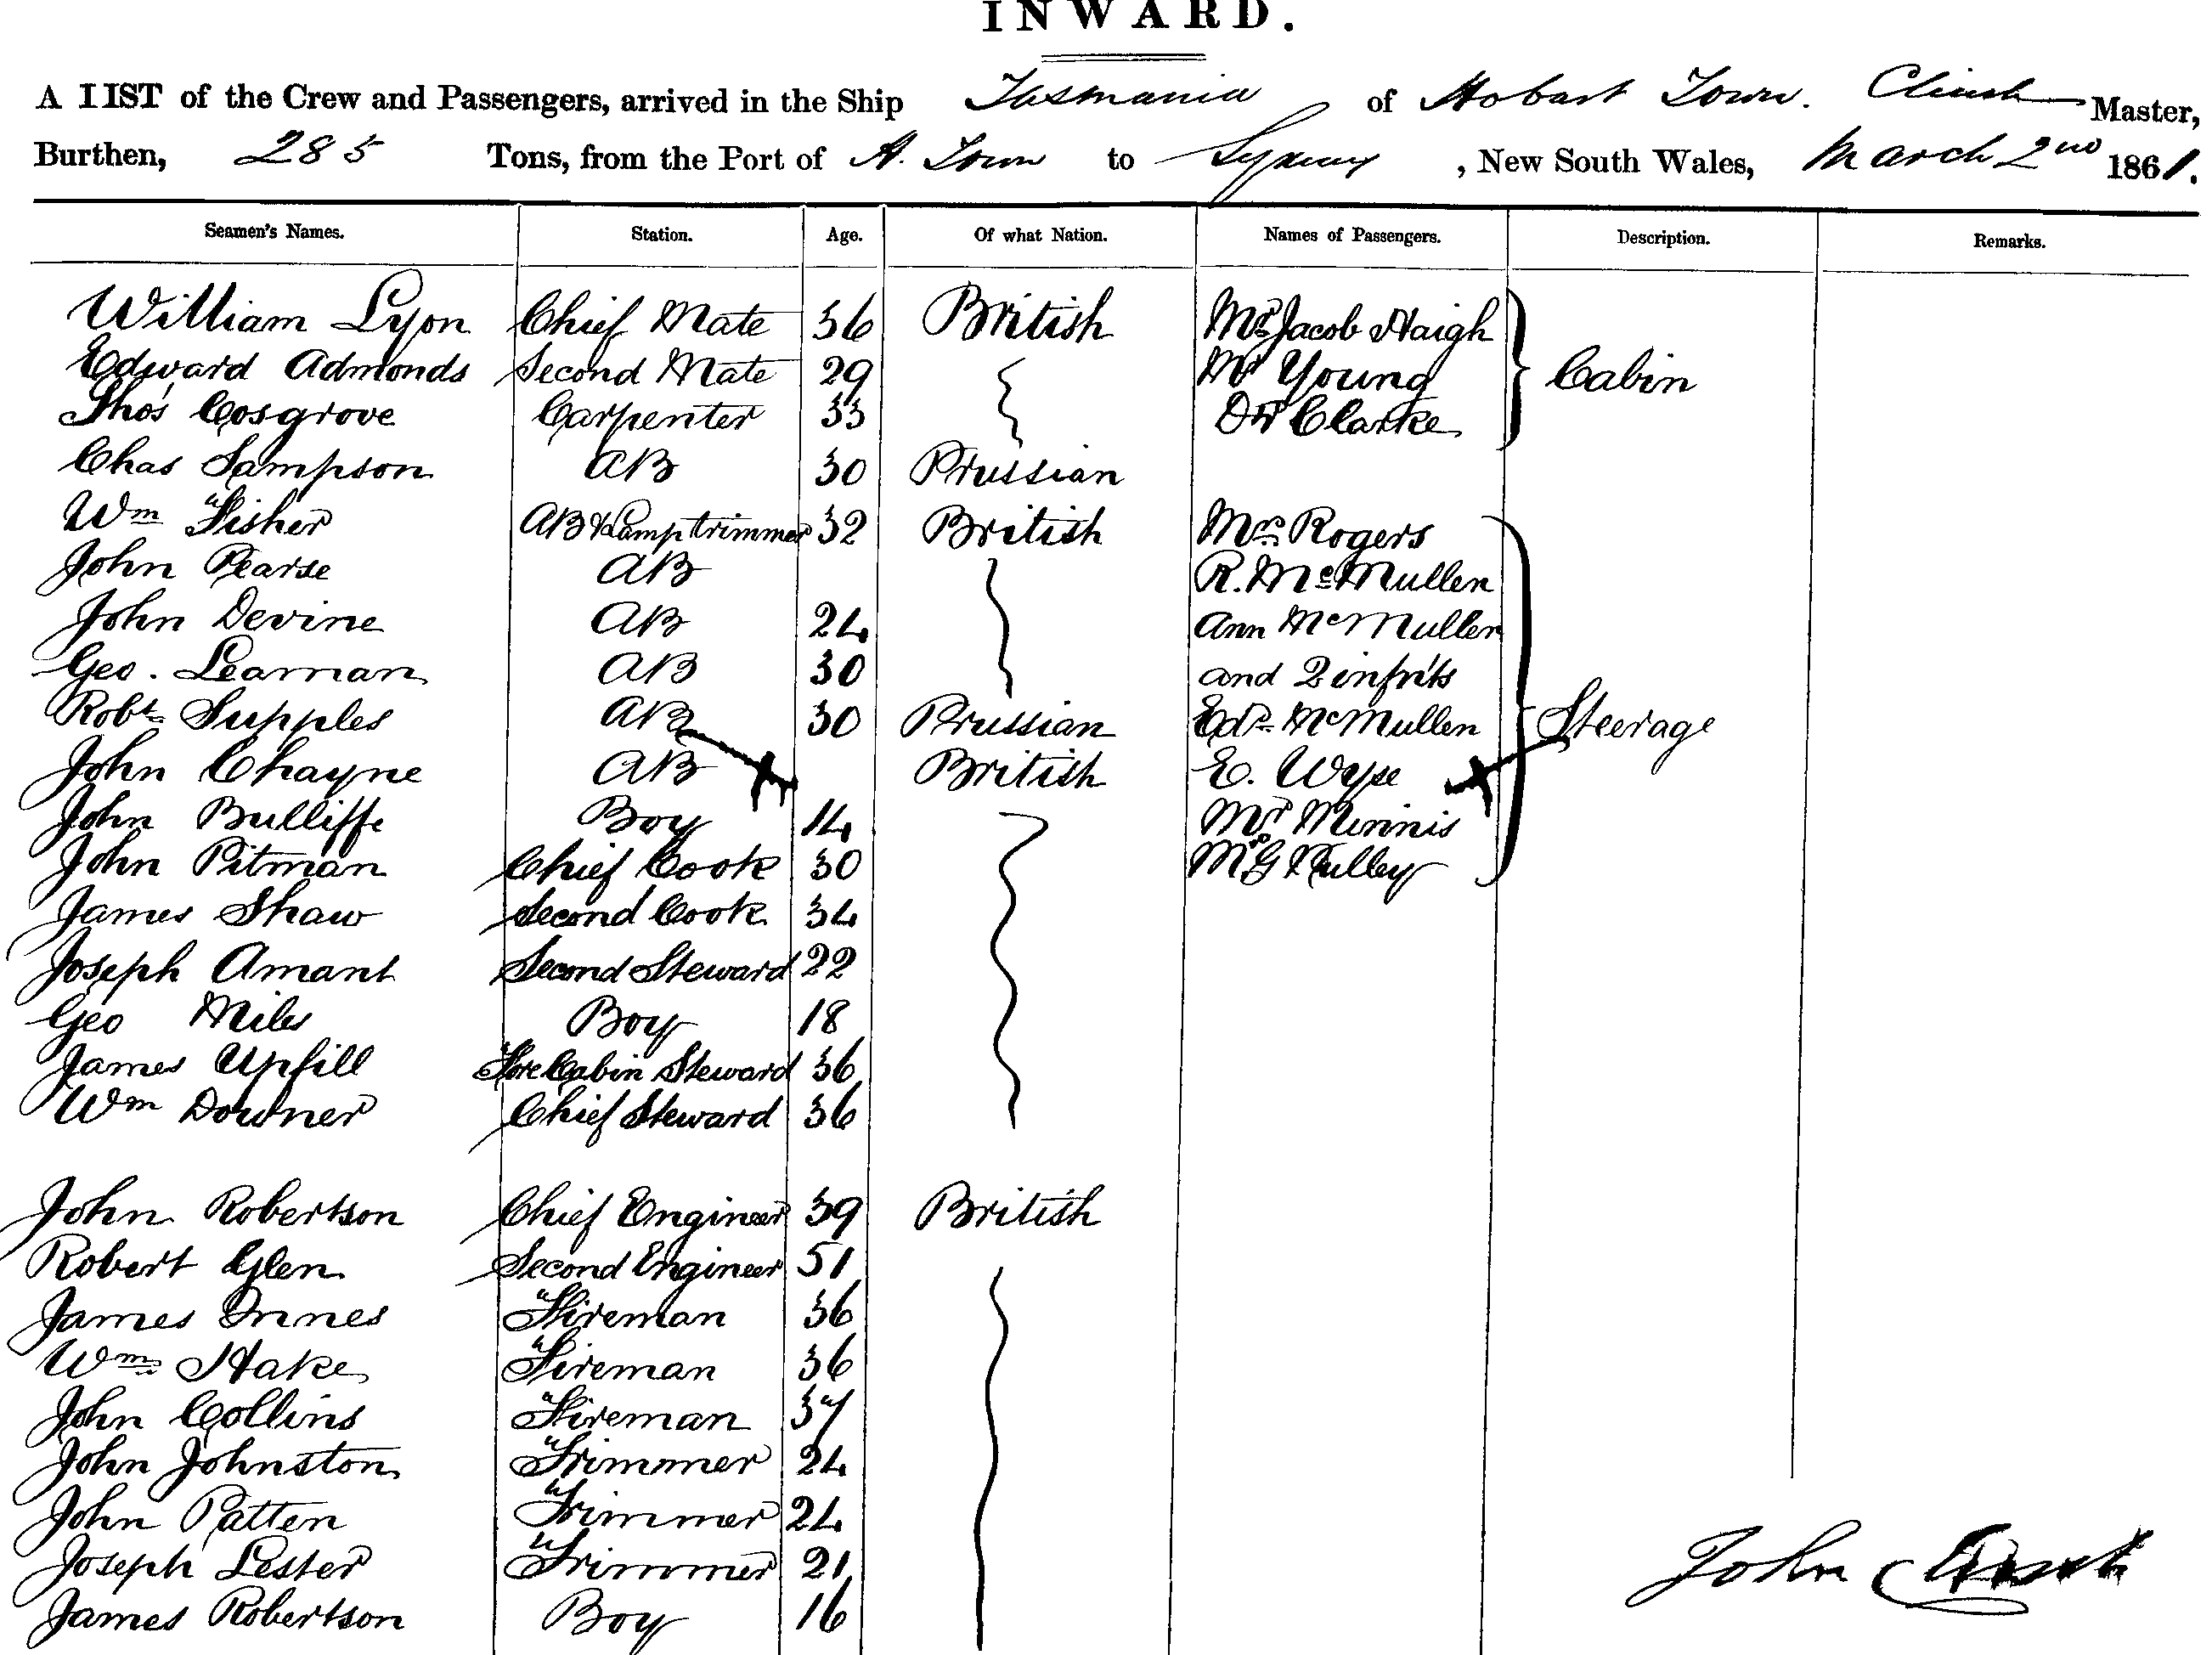 INWARD.
A LIST of the Crew and Passengers, arrived in the Ship Tasmania of Hobart Town. Clinch Master,
Burthen, 285 Tons, from the Port of H. Town to Sydney, New South Wales, March 2nd 1861.
Seamen's Names. Station. Age. Of what Nation. Names of Passengers. Description. Remarks.
William Lyon Chief Mate 36 British Mr Jacob Haigh
Edward Admonds Second Mate 29 Mr Young Cabin
Thos Cosgrove Carpenter 33 Dr Clarke
Chas Sampson AB 30 Prussian
Wm Fisher AB & Lamptrimmer 32 British Mrs Rogers
John Pearse AB R. McMullen
John Devine AB 24 Ann McMullen
Geo. Leaman AB 30 and 2 infnts
Robt Supples AB 30 Prussian Edd McMullen Steerage
John Chayne AB British E. Wyse
John Bulliffe Boy 14 Mr Minnis
John Pitman Chief Cook 30 Mr G Nulley
James Shaw Second Cook 34
Joseph Amant Second Steward 22
Geo Miles Boy 18
James Upfill Fore Cabin Steward 36
Wm Downer Chief Steward 36
John Robertson Chief Engineer 39 British
Robert Glen Second Engineer 51
James Innes Fireman 36
Wm Hake Fireman 36
John Collins Fireman 37
John Johnston Trimmer 24
John Patten Trimmer 24
Joseph Lester Trimmer 21
James Robertson Boy 16
John Clinch